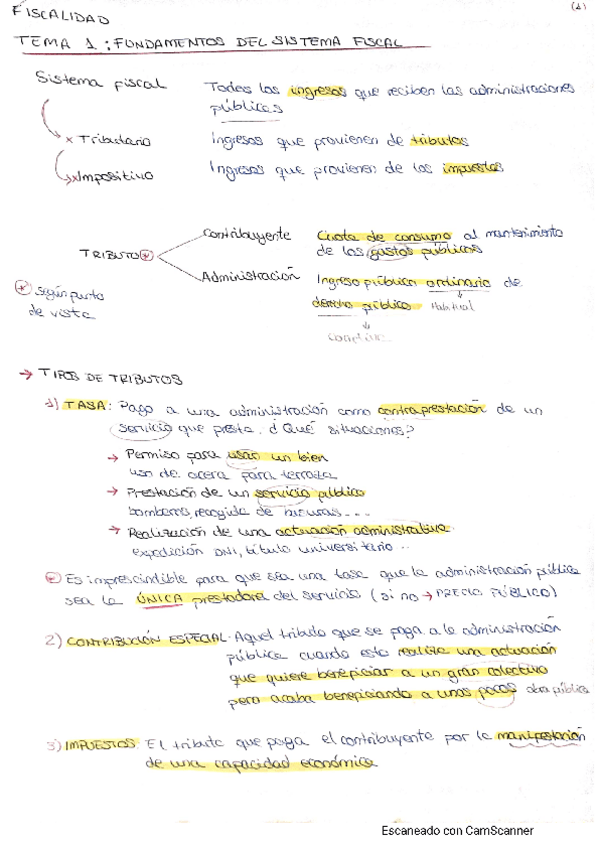 FISCALIDAD
(1)
TEMA 1: FUNDAMENTOS DEL SISTEMA FISCAL
Sistema fiscal Todos los ingresos que reciben las administraciones
públicas
Tributario Ingresos que provienen de tributos
Impositivo Ingresos que provienen de los impuestos
Contribuyente Cuota de consumo al mantenimiento
de los gastos públicos
TRIBUTO *
Administración Ingreso público ordinario de
derecho público Habitual
* según punto
de vista
→ TIPOS DE TRIBUTOS
1) TASA: Pago a una administración como contraprestación de un
servicio que presta. ¿Qué situaciones?
→ Permiso para usar un bien
uso de acera para terraza
→ Prestación de un servicio público
bomberos, recogida de basuras...
→ Realización de una actuación administrativa
expedición DNI, título universitario..
* Es imprescindible para que sea una tasa que la administración pública
sea la ÚNICA prestadora del servicio (si no → PRECIO PÚBLICO)
2) CONTRIBUCIÓN ESPECIAL: Aquel tributo que se paga a la administración
pública cuando esta realiza una actuación
que quiere beneficiar a un gran colectivo
pero acaba beneficiando a unos pocos obra pública
3) IMPUESTOS El tributo que paga el contribuyente por la manifestación
de una capacidad económica
Escaneado con CamScanner